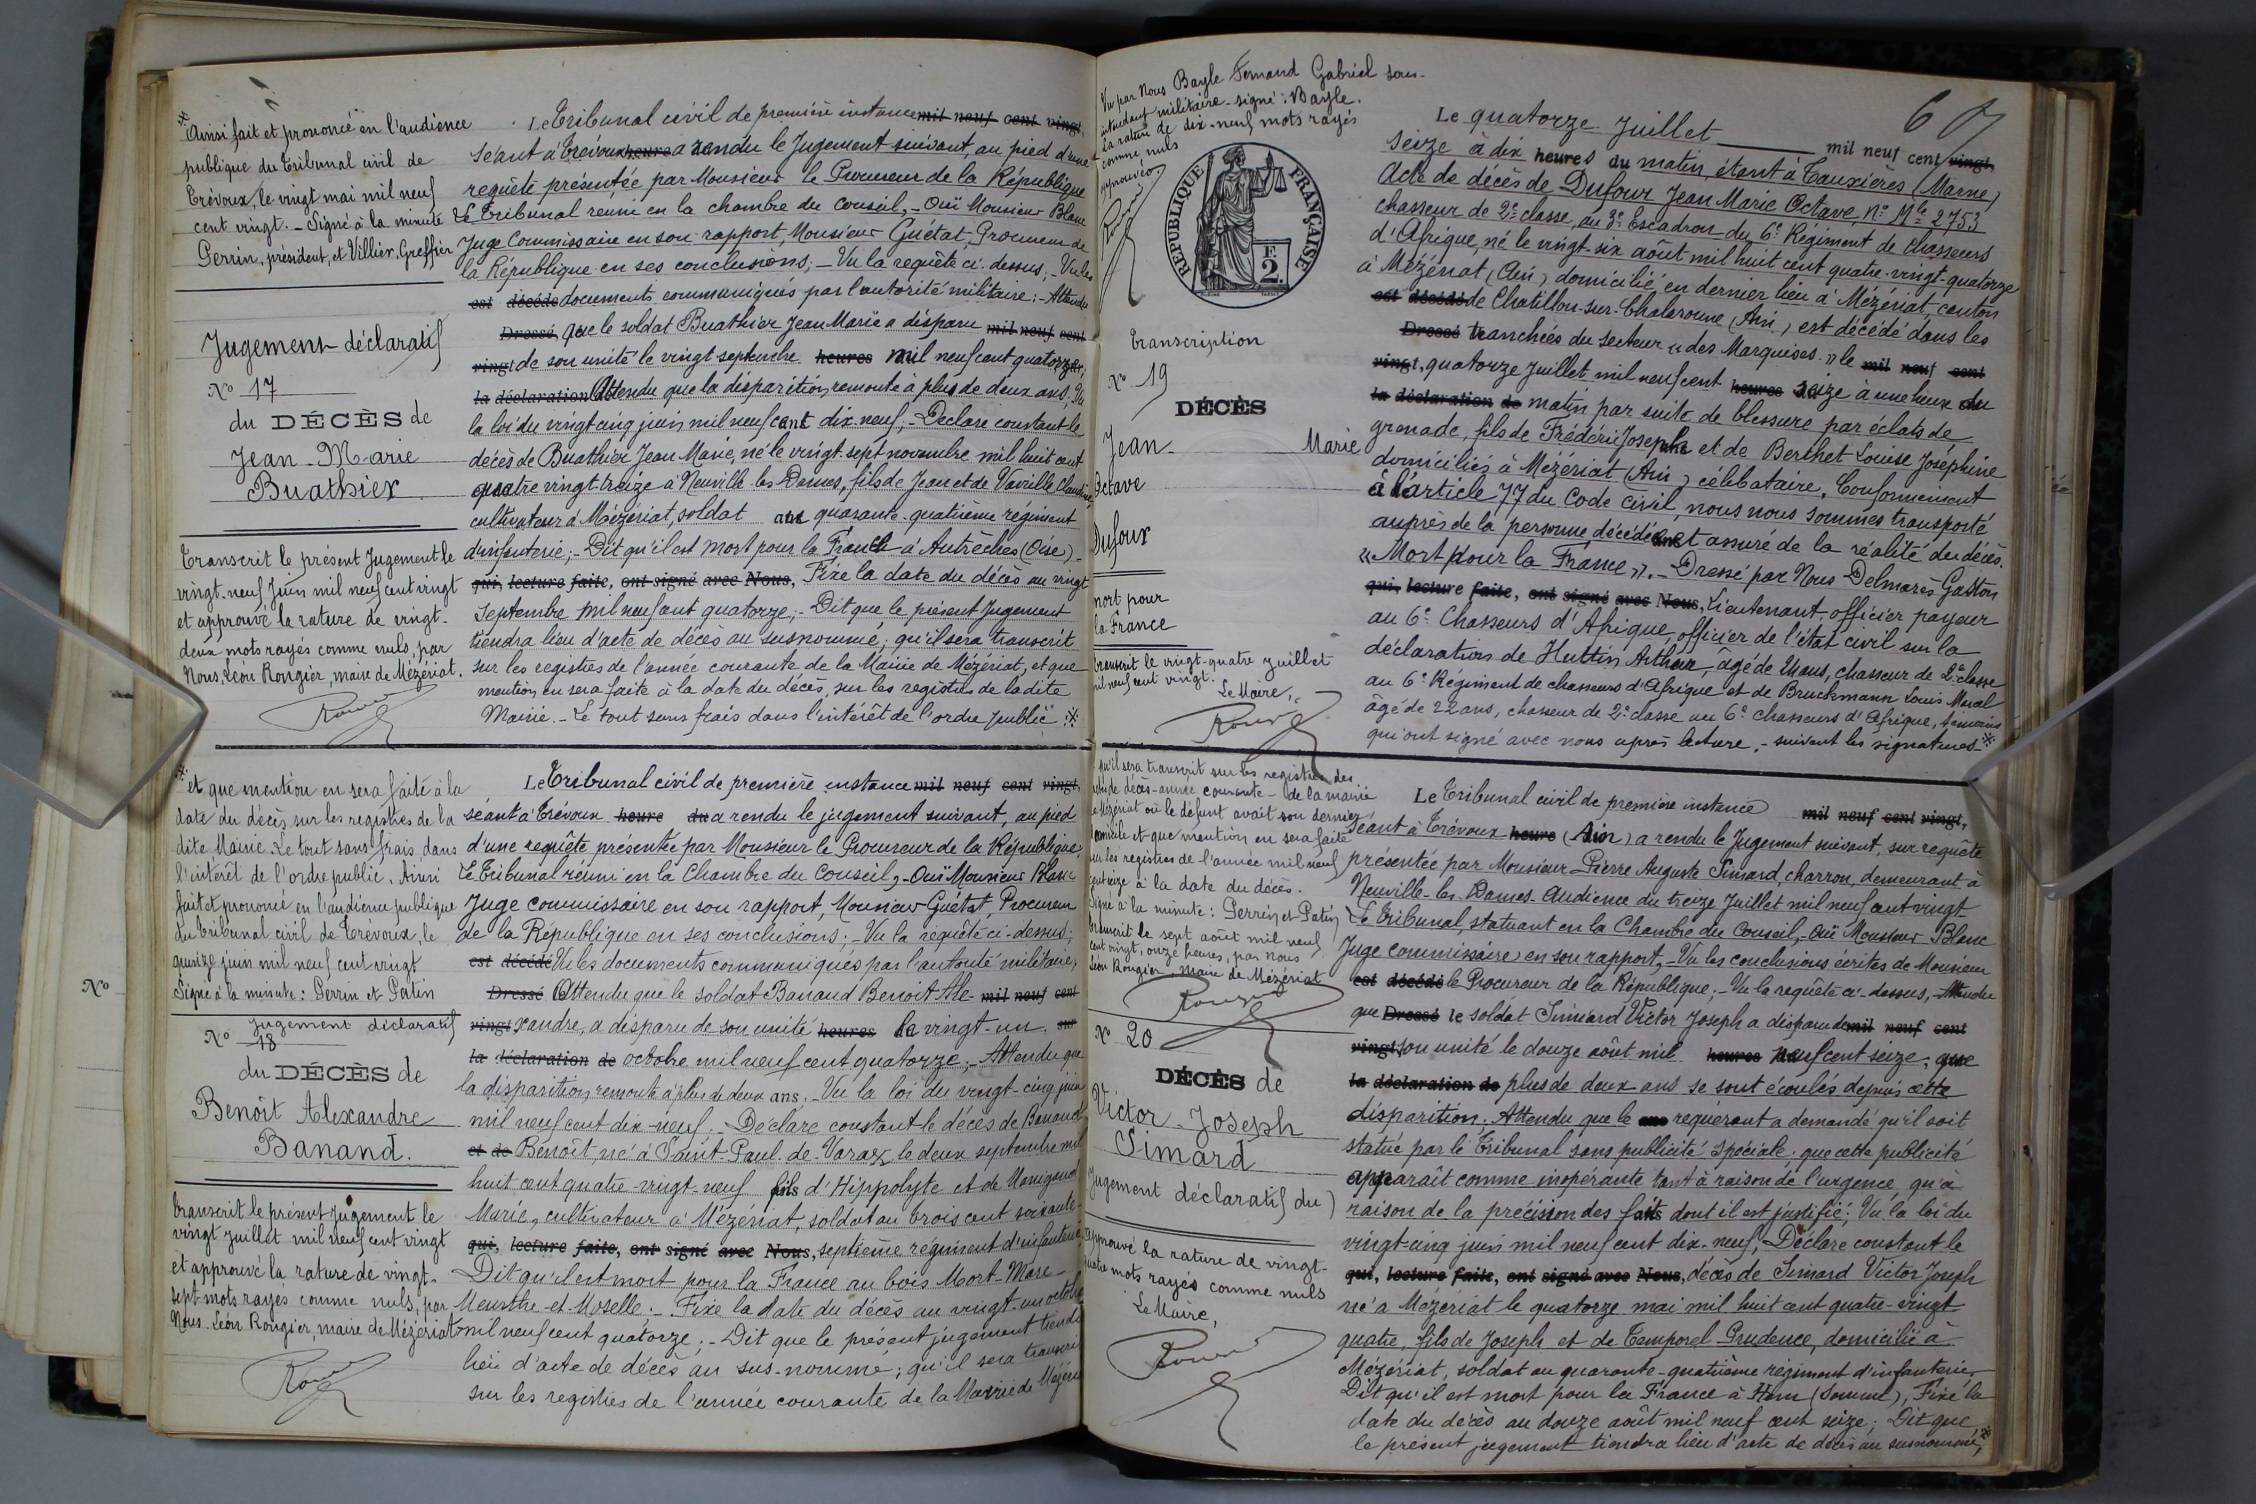 ※ Ainsi fait et prononcé en l'audience
publique du Tribunal civil de
Trévoux, le vingt mai mil neuf
cent vingt. _ Signé à la minute
Perrin, président, et Villier, Greffier
Jugement déclaratif
N° 17
du DÉCÈS de
Jean-Marie
Buathier
Transcrit le présent Jugement le
vingt-neuf Juin mil neuf cent vingt
et approuvé la rature de vingt-
deux mots rayés comme nuls, par
Nous, Léon Rongier, maire de Mézériat.
Le Tribunal civil de première instance mil neuf cent vingt,
séant à Trévoux heure a rendu le Jugement suivant, au pied d'une
requête présentée par Monsieur le Procureur de la République
Le Tribunal réuni en la chambre du conseil, - Ouï Monsieur Blanc
Juge Commissaire en son rapport, Monsieur Guétat, Procureur de
la République en ses conclusions; - Vu la requête ci-dessus, - Vu les
est décédé documents communiqués par l'autorité militaire; - Attendu
Dressé que le soldat Buathier Jean Marie a disparu mil neuf cent
vingt de son unité le vingt septembre heures mil neuf cent quatorze;
la déclaration Attendu que la disparition remonte à plus de deux ans; Vu
la loi du vingt cinq juin mil neuf cent dix neuf; - Déclare constant le
décès de Buathier Jean Marie, né le vingt-sept novembre mil huit cent
quatre vingt treize à Neuville les Dames, fils de Jean et de Vavrille Claudine,
cultivateur à Mézériat, soldat au quarante-quatrième régiment
d'infanterie; - Dit qu'il est mort pour la France à Autrèches (Oise) -
qui, lecture faite, ont signé avec Nous, Fixe la date du décès au vingt
Septembre mil neuf cent quatorze; - Dit que le présent Jugement
tiendra lieu d'acte de décès au susnommé; qu'il sera transcrit
sur les registres de l'année courante de la Mairie de Mézériat, et que
mention en sera faite à la date du décès, sur les registres de ladite
Mairie. - Le tout sans frais dans l'intérêt de l'ordre public. ※
※ et que mention en sera faite à la
date du décès sur les registres de la
dite Mairie. Le tout sans frais, dans
l'intérêt de l'ordre public. Ainsi
fait et prononcé en l'audience publique
du Tribunal civil de Trévoux, le
quinze juin mil neuf cent vingt
Signé à la minute: Perrin et Patin
N°
Jugement déclaratif
N° 18
du DÉCÈS de
Benoît Alexandre
Banand.
Transcrit le présent Jugement le
vingt juillet mil neuf cent vingt
et approuvé la rature de vingt-
sept mots rayés comme nuls, par
Nous. Léon Rongier, maire de Mézériat
Le Tribunal civil de première instance mil neuf cent vingt,
séant à Trévoux heure du a rendu le jugement suivant, au pied
d'une requête présentée par Monsieur le Procureur de la République,
Le Tribunal réuni en la Chambre du Conseil, - Ouï Monsieur Blanc
Juge commissaire en son rapport, Monsieur Guétat, Procureur
de la République en ses conclusions; - Vu la requête ci-dessus;
est décédé Vu les documents communiqués par l'autorité militaire,
Dressé Attendu que le soldat Banand Benoît Ale- mil neuf cent
vingt xandre, a disparu de son unité heures le vingt-un sur
la déclaration de octobre mil neuf cent quatorze; - Attendu que
la disparition remonte à plus de deux ans. - Vu la loi du vingt-cinq juin
mil neuf cent dix-neuf. - Déclare constant le décès de Banand
et de Benoît, né à Saint-Paul-de-Varax, le deux septembre mil
huit cent quatre-vingt-neuf fils d'Hippolyte et de
Marie, cultivateur à Mézériat, soldat au trois cent soixante
qui, lecture faite, ont signé avec Nous, septième régiment d'infanterie
Dit qu'il est mort pour la France au bois Mort-Mare -
Meurthe-et-Moselle; - Fixe la date du décès au vingt-un octobre
mil neuf cent quatorze; - Dit que le présent jugement tiendra
lieu d'acte de décès au sus-nommé; qu'il sera transcrit
sur les registres de l'année courante de la Mairie de Mézériat
Vu par Nous Bayle Fernand Gabriel sous-
intendant militaire - signé: Bayle.
La rature de dix-neuf mots rayés
comme nuls
approuvée.
RÉPUBLIQUE FRANÇAISE
F.
2.
Transcription
N° 19
DÉCÈS
Jean- Marie
Octave
Dufour
mort pour
la France
Transcrit le vingt-quatre juillet
mil neuf cent vingt.
Le Maire,
60
Le quatorze Juillet mil neuf cent vingt,
seize à dix heures du matin, étant à Tauxières (Marne)
Acte de décès de Dufour Jean Marie Octave, N° Mle 2753
chasseur de 2e classe, au 3e Escadron du 6e Régiment de chasseurs
d'Afrique, né le vingt-six août mil huit cent quatre-vingt-quatorze
à Mézériat, (Ain) domicilié en dernier lieu à Mézériat, canton
est décédé de Chatillon-sur-Chalaronne (Ain), est décédé dans les
Dressé tranchées du secteur « des Marquises. » le mil neuf cent
vingt, quatorze Juillet mil neuf cent heures seize à une heure du
la déclaration de matin par suite de blessure par éclats de
grenade, fils de Frédéric Joseph et de Berthet Louise Joséphine
domiciliés à Mézériat (Ain), célibataire. Conformément
à l'article 77 du Code civil, nous nous sommes transporté
auprès de la personne décédée et assuré de la réalité du décès.
« Mort pour la France ». - Dressé par Nous Delmarès Gaston
qui, lecture faite, ont signé avec Nous, Lieutenant, officier payeur
au 6e Chasseurs d'Afrique, officier de l'état civil sur la
déclaration de Huttin Arthur, âgé de ans, chasseur de 2e classe
au 6e Régiment de chasseurs d'Afrique et de Bruckmann Louis Marcel
âgé de 22 ans, chasseur de 2e classe au 6e chasseurs d'Afrique, témoins
qui ont signé avec nous après lecture. - suivent les signatures ※
qu'il sera transcrit sur les registres des
actes de décès-année courante - de la mairie
de Mézériat où le défunt avait son dernier
domicile et que mention en sera faite
sur les registres de l'année mil neuf
cent seize à la date du décès.
Signé à la minute: Perrin et Patin
Transcrit le sept août mil neuf
cent vingt, onze heures, par nous
Léon Rongier, maire de Mézériat
N° 20
DÉCÈS de
Victor-Joseph
Simard
Jugement déclaratif du)
Approuvé la rature de vingt-
quatre mots rayés comme nuls
Le Maire,
Le Tribunal civil de première instance mil neuf cent vingt,
séant à Trévoux heure (Ain) a rendu le Jugement suivant, sur requête
présentée par Monsieur Pierre Auguste Simard, charron, demeurant à
Neuville-les-Dames. Audience du treize Juillet mil neuf cent vingt
Le Tribunal, statuant en la Chambre du Conseil, - Ouï Monsieur Blanc
Juge commissaire en son rapport, - Vu les conclusions écrites de Monsieur
est décédé le Procureur de la République; - Vu la requête ci-dessus, - Attendu
que Dressé le soldat Simard Victor Joseph a disparu de mil neuf cent
vingt, son unité le douze août mil heures neuf cent seize; que
la déclaration de plus de deux ans se sont écoulés depuis cette
disparition; Attendu que le requérant a demandé qu'il soit
statué par le Tribunal sans publicité spéciale; que cette publicité
apparaît comme inopérante tant à raison de l'urgence qu'à
raison de la précision des faits dont il est justifié; Vu la loi du
vingt-cinq juin mil neuf cent dix-neuf, Déclare constant le
qui, lecture faite, ont signé avec Nous, décès de Simard Victor Joseph
né à Mézériat le quatorze mai mil huit cent quatre-vingt
quatre, fils de Joseph et de Temporel Prudence, domicilié à
Mézériat, soldat au quarante-quatrième régiment d'infanterie,
Dit qu'il est mort pour la France à Ham (Somme), Fixe la
date du décès au douze août mil neuf cent seize; Dit que
le présent jugement tiendra lieu d'acte de décès au susnommé, ※